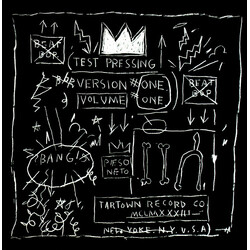 BEAT
BOP
TEST PRESSING
VERSION #ONE
BEAT
BOP
VOLUME ONE
BANG!!
PESO
NETO
TARTOWN RECORD CO.
NEW YORKE, N.Y. U.S.A.